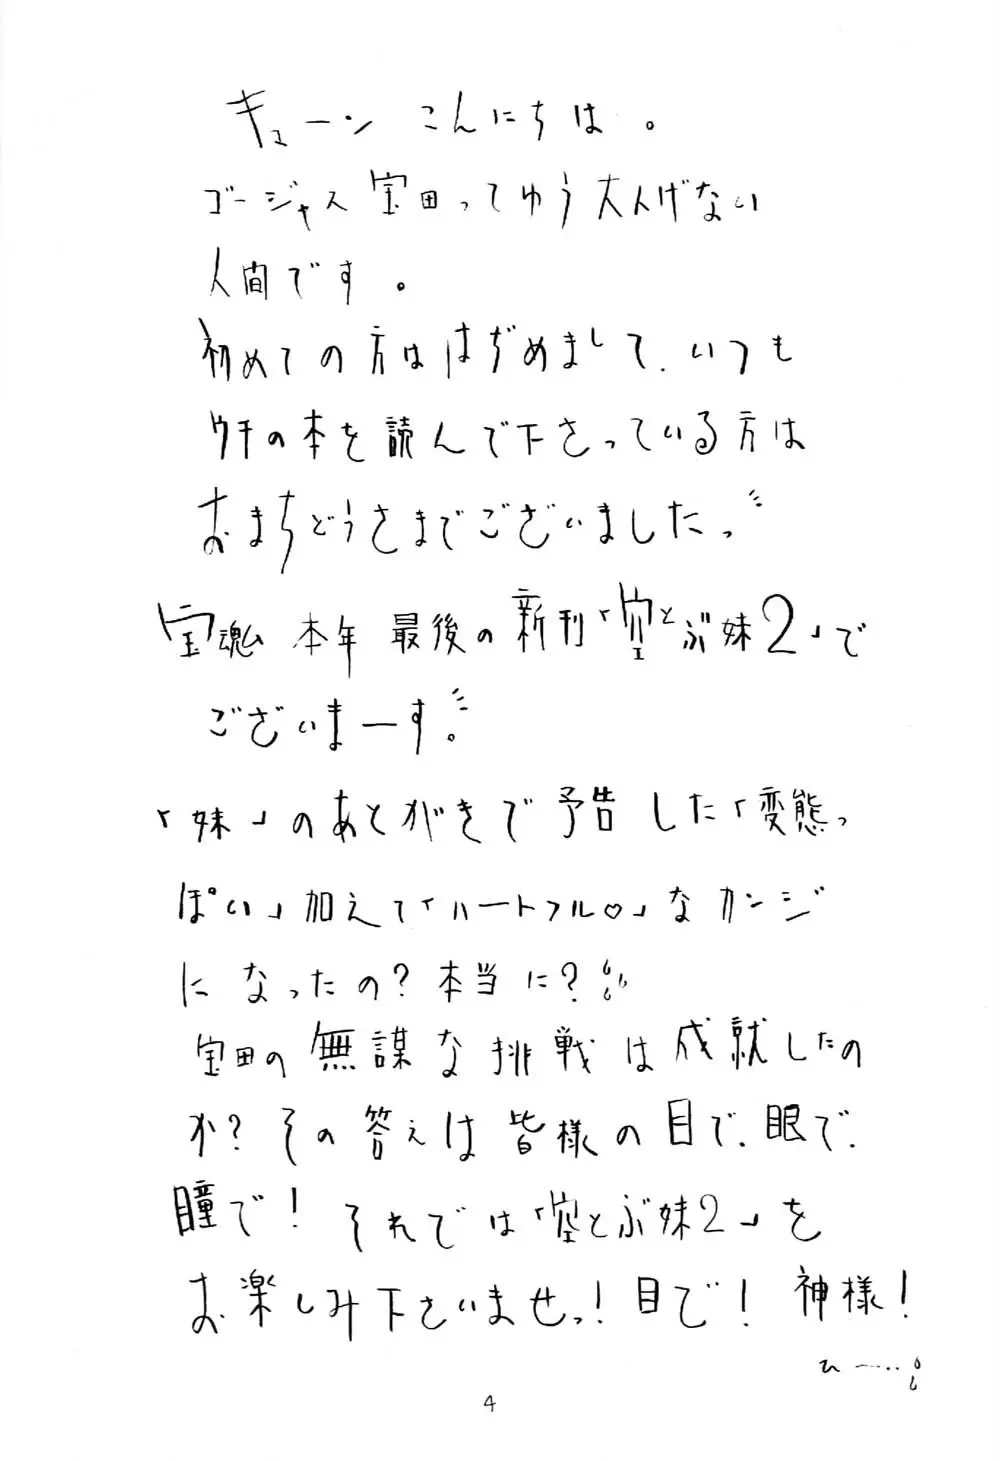 キューン こんにちは。
ゴージャス宝田ってゆう大人げない
人間です。
初めての方ははぢめまして、いつも
ウチの本を読んで下さっている方は
おまちどうさまでございましたっ
宝魂 本年 最後の新刊「空とぶ妹2」で
ございまーす。
「妹」のあとがきで予告した「変態っ
ぽい」加えて「ハートフル♡」なカンジ
になったの?本当に?
宝田の無謀な挑戦は成就したの
か?その答えは皆様の目で、眼で、
瞳で!それでは「空とぶ妹2」を
お楽しみ下さいませっ!目で!神様!
ひー…‥
4